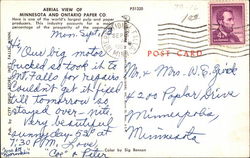 AERIAL VIEW OF
MINNESOTA AND ONTARIO PAPER CO
Here is one of the world's largest pulp and paper
producers. This industry accounts for a major
percentage of the prosperity of the community.
P51320
Mon. Sept.
POST CARD
Our big motor
bucked so took it to
Int. Falls for repairs
Couldn't get it fixed
till tomorrow so
stayed over-nite.
Very beautiful
sunny day - 58° at
7:30 P.M. Love,
"Coe" & Peter
Mr. & Mrs. W. E. Frick
4200 Poplar Drive
Minneapolis,
Minnesota
Color by Sig Benson